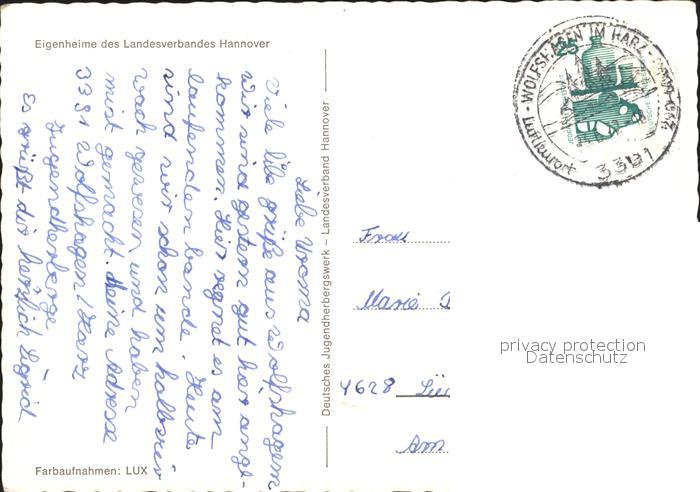 Eigenheime des Landesverbandes Hannover
Liebe Uroma
Viele libe grüße aus Wolfshagen
wir sind gestern gut hier ange-
kommen. Hier regnet es am
laufenden bande. Heute
sind wir schon um halb
wach gewesen und haben
mist gemacht. Meine Adresse
3391 Wolfshagen / Harz
Jugendherberge
Es grüßt dir herzlich Sigrid
Farbaufnahmen: LUX
Deutsches Jugendherbergswerk – Landesverband Hannover
WOLFSHAGEN IM HARZ
Luftkurort
3391
25
Frau
Marie
4628
Am
privacy protection
Datenschutz